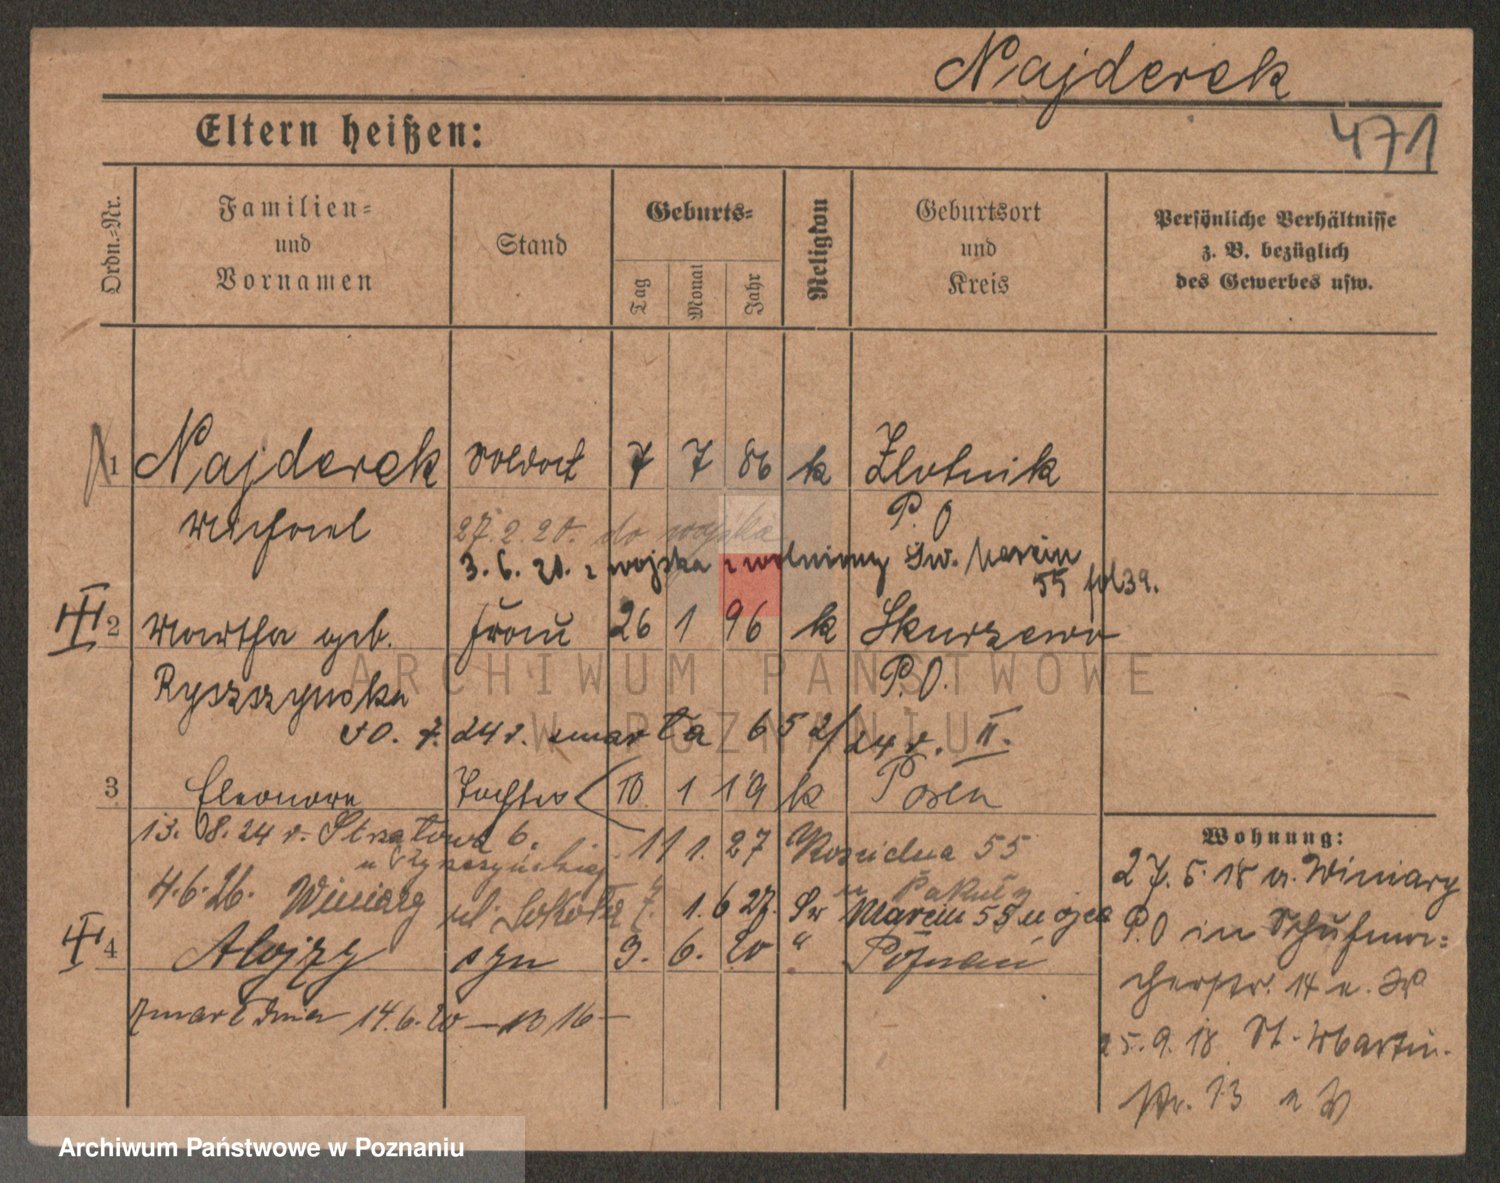 Najderek
471
Eltern heißen:
Ordn.-Nr.
Familien-
und
Vornamen
Stand
Geburts-
Tag
Monat
Jahr
Religion
Geburtsort
und
Kreis
Persönliche Verhältnisse
z. B. bezüglich
des Gewerbes usw.
1 Najderek Soldat 7 7 86 k Zlotnik
Michael P. O
27.2.20. do wojska
3. 6. 21. z wojska zwolniony Św. Marcin
55
III 2 Martha geb. Frau 26 1 96 k Skurzewo
Ryszzynska P. O.
7. 24 r. zmarła 652/24 r. II.
3 Eleonore Tochter 10. 1 19 k Posen
13. 8. 24 r. Strzałowa 6. 11 1. 27 55
4.6.26. Winiary ul. 1. 6 27. Św Marcin 55 u ojca
I 4 Alojzy syn 9. 6. 20 " Poznań
Zmarł dnia 14.6.20 — 16 —
Wohnung:
27. 5. 18 Winiary
P. O in Schuhma-
cherstr. 14
25. 9. 18 St. Martin-
str. 13
ARCHIWUM PAŃSTWOWE
W POZNANIU
Archiwum Państwowe w Poznaniu